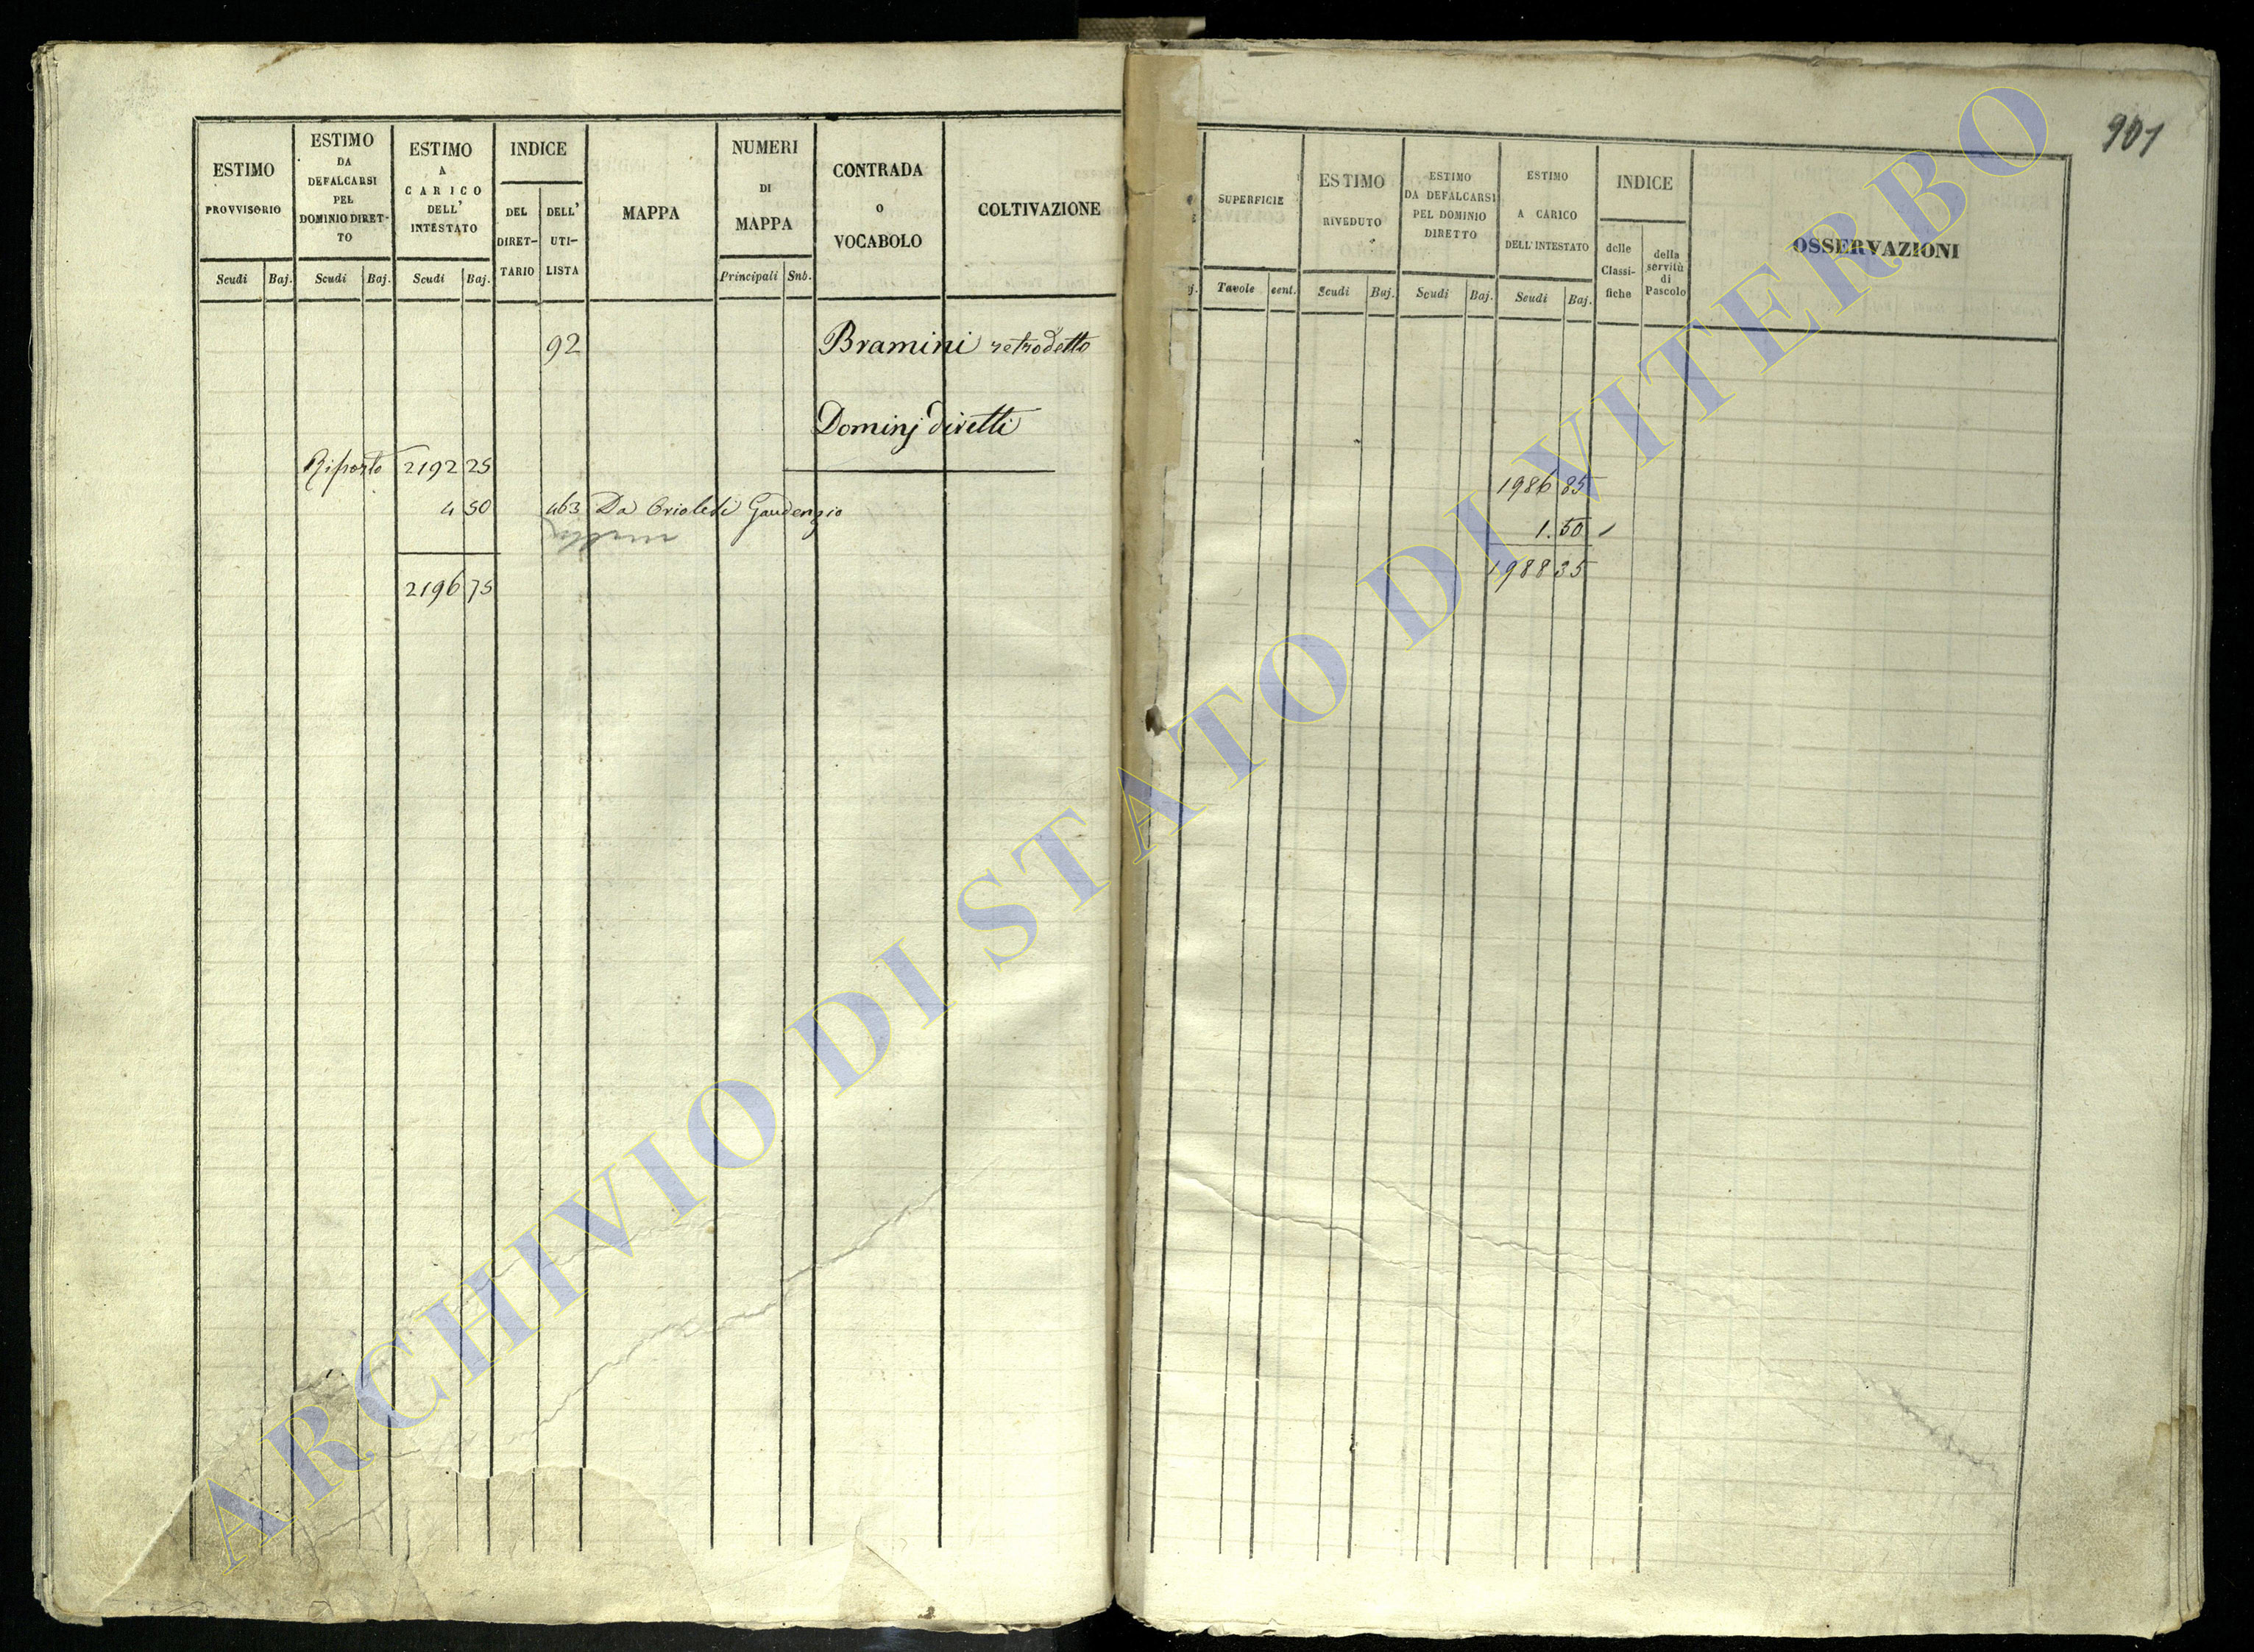 901
ESTIMO
PROVVISORIO
Scudi Baj.
ESTIMO
DA
DEFALCARSI
PEL
DOMINIO DIRET-
TO
Scudi Baj.
ESTIMO
A
CARICO
DELL'
INTESTATO
Scudi Baj.
INDICE
DEL
DIRET-
TARIO
DELL'
UTI-
LISTA
MAPPA
NUMERI
DI
MAPPA
Principali Sub.
CONTRADA
O
VOCABOLO
COLTIVAZIONE
SUPERFICIE
Tavole cent.
ESTIMO
RIVEDUTO
Scudi Baj.
ESTIMO
DA DEFALCARSI
PEL DOMINIO
DIRETTO
Scudi Baj.
ESTIMO
A CARICO
DELL'INTESTATO
Scudi Baj.
INDICE
delle
Classi-
fiche
della
servitù
di
Pascolo
OSSERVAZIONI
92 Bramini retrodetto
Dominj diretti
Riporto 2192 25 1986 85
4 50 463 Da Gaudenzio 1.50
2196 75 1988 35
ARCHIVIO DI STATO DI VITERBO